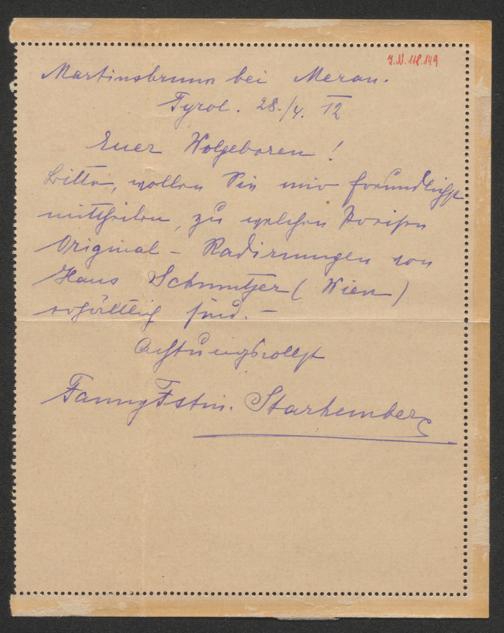 J.N. 118.149
Martinsbrunn bei Meran.
Tyrol. 28./4. 12
Euer Wolgeboren!
Bitte, wollen Sie mir freundlichst
mittheilen, zu welchen Preisen
Original - Radirungen von
Hans Schmutzer (Wien)
erhältlich sind. -
Achtungsvollst
Fanny Fstin. Starhemberg